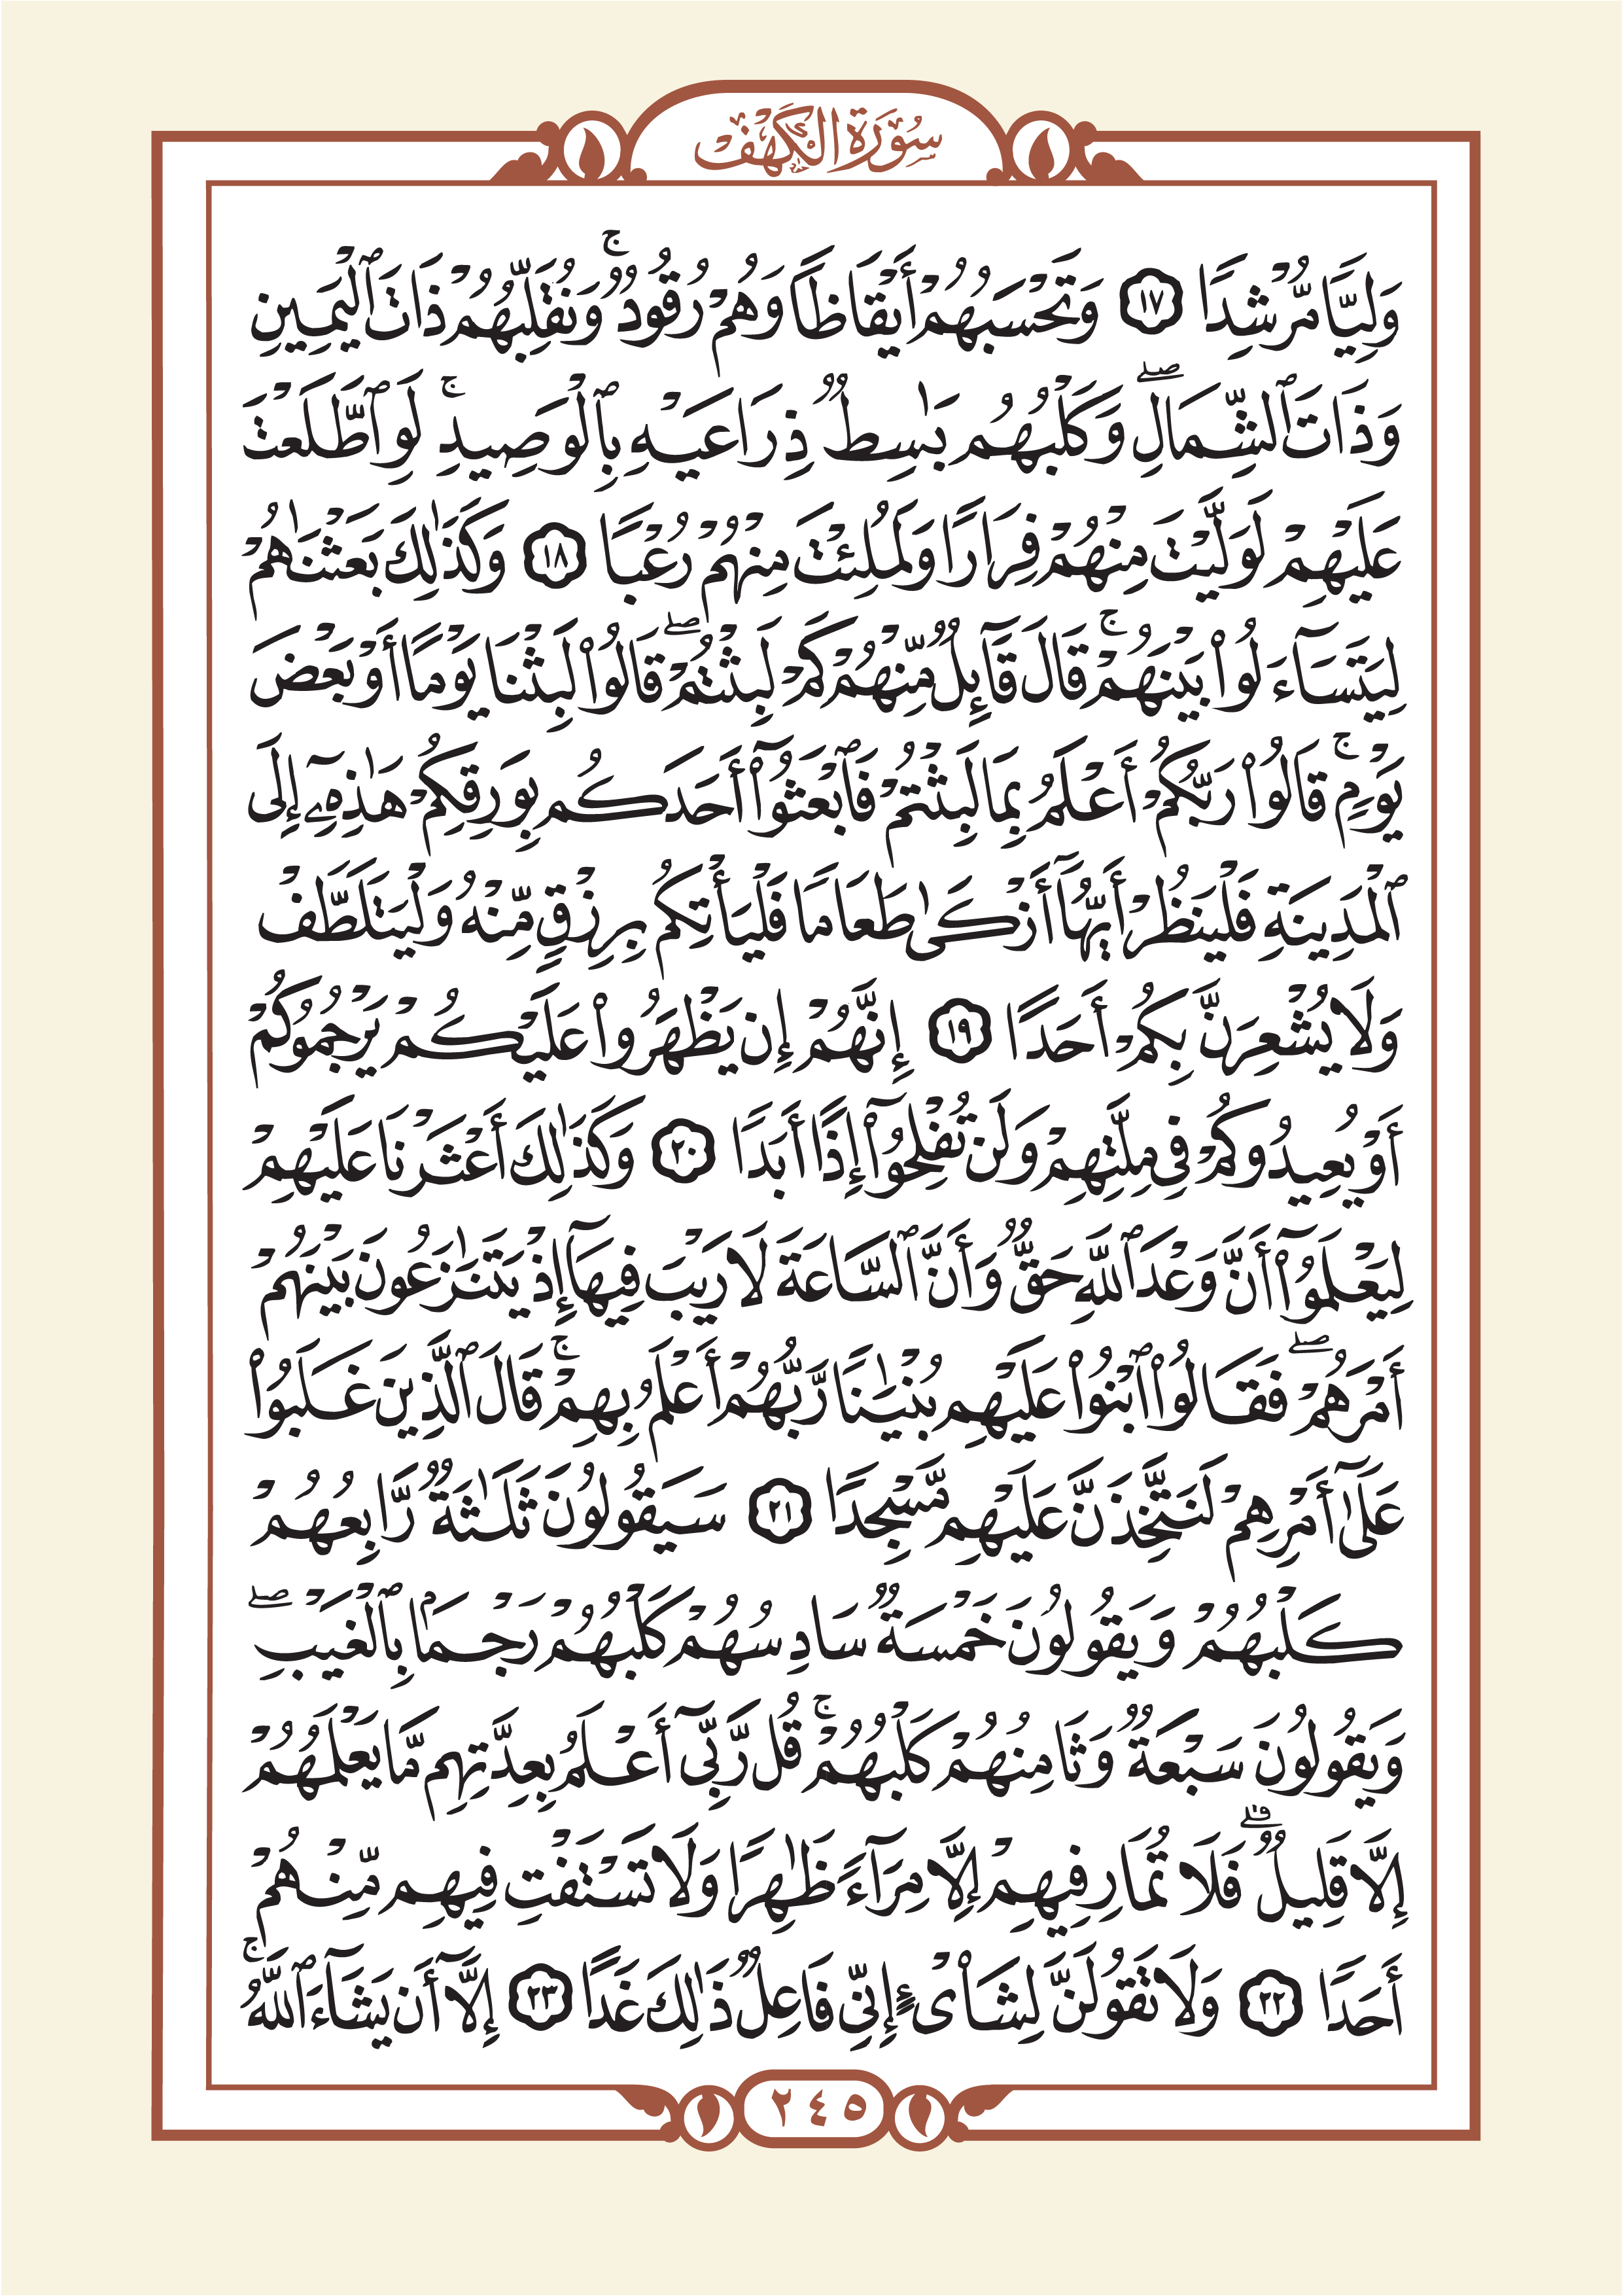 سُورَةُ الكَهْف
وَلِيًّا مُّرْشِدًا ١٧ وَتَحْسَبُهُمْ أَيْقَاظًا وَهُمْ رُقُودٌ ۚ وَنُقَلِّبُهُمْ ذَاتَ ٱلْيَمِينِ
وَذَاتَ ٱلشِّمَالِ ۖ وَكَلْبُهُم بَٰسِطٌ ذِرَاعَيْهِ بِٱلْوَصِيدِ ۚ لَوِ ٱطَّلَعْتَ
عَلَيْهِمْ لَوَلَّيْتَ مِنْهُمْ فِرَارًا وَلَمُلِئْتَ مِنْهُمْ رُعْبًا ١٨ وَكَذَٰلِكَ بَعَثْنَٰهُمْ
لِيَتَسَآءَلُوا۟ بَيْنَهُمْ ۚ قَالَ قَآئِلٌ مِّنْهُمْ كَمْ لَبِثْتُمْ ۖ قَالُوا۟ لَبِثْنَا يَوْمًا أَوْ بَعْضَ
يَوْمٍ ۚ قَالُوا۟ رَبُّكُمْ أَعْلَمُ بِمَا لَبِثْتُمْ فَٱبْعَثُوٓا۟ أَحَدَكُم بِوَرِقِكُمْ هَٰذِهِۦٓ إِلَى
ٱلْمَدِينَةِ فَلْيَنظُرْ أَيُّهَآ أَزْكَىٰ طَعَامًا فَلْيَأْتِكُم بِرِزْقٍ مِّنْهُ وَلْيَتَلَطَّفْ
وَلَا يُشْعِرَنَّ بِكُمْ أَحَدًا ١٩ إِنَّهُمْ إِن يَظْهَرُوا۟ عَلَيْكُمْ يَرْجُمُوكُمْ
أَوْ يُعِيدُوكُمْ فِى مِلَّتِهِمْ وَلَن تُفْلِحُوٓا۟ إِذًا أَبَدًا ٢٠ وَكَذَٰلِكَ أَعْثَرْنَا عَلَيْهِمْ
لِيَعْلَمُوٓا۟ أَنَّ وَعْدَ ٱللَّهِ حَقٌّ وَأَنَّ ٱلسَّاعَةَ لَا رَيْبَ فِيهَآ إِذْ يَتَنَٰزَعُونَ بَيْنَهُمْ
أَمْرَهُمْ ۖ فَقَالُوا۟ ٱبْنُوا۟ عَلَيْهِم بُنْيَٰنًا رَّبُّهُمْ أَعْلَمُ بِهِمْ ۚ قَالَ ٱلَّذِينَ غَلَبُوا۟
عَلَىٰٓ أَمْرِهِمْ لَنَتَّخِذَنَّ عَلَيْهِم مَّسْجِدًا ٢١ سَيَقُولُونَ ثَلَٰثَةٌ رَّابِعُهُمْ
كَلْبُهُمْ وَيَقُولُونَ خَمْسَةٌ سَادِسُهُمْ كَلْبُهُمْ رَجْمًۢا بِٱلْغَيْبِ ۖ
وَيَقُولُونَ سَبْعَةٌ وَثَامِنُهُمْ كَلْبُهُمْ ۚ قُل رَّبِّىٓ أَعْلَمُ بِعِدَّتِهِم مَّا يَعْلَمُهُمْ
إِلَّا قَلِيلٌ ۗ فَلَا تُمَارِ فِيهِمْ إِلَّا مِرَآءً ظَٰهِرًا وَلَا تَسْتَفْتِ فِيهِم مِّنْهُمْ
أَحَدًا ٢٢ وَلَا تَقُولَنَّ لِشَا۟ىْءٍ إِنِّى فَاعِلٌ ذَٰلِكَ غَدًا ٢٣ إِلَّآ أَن يَشَآءَ ٱللَّهُ ۚ
٢٤٥